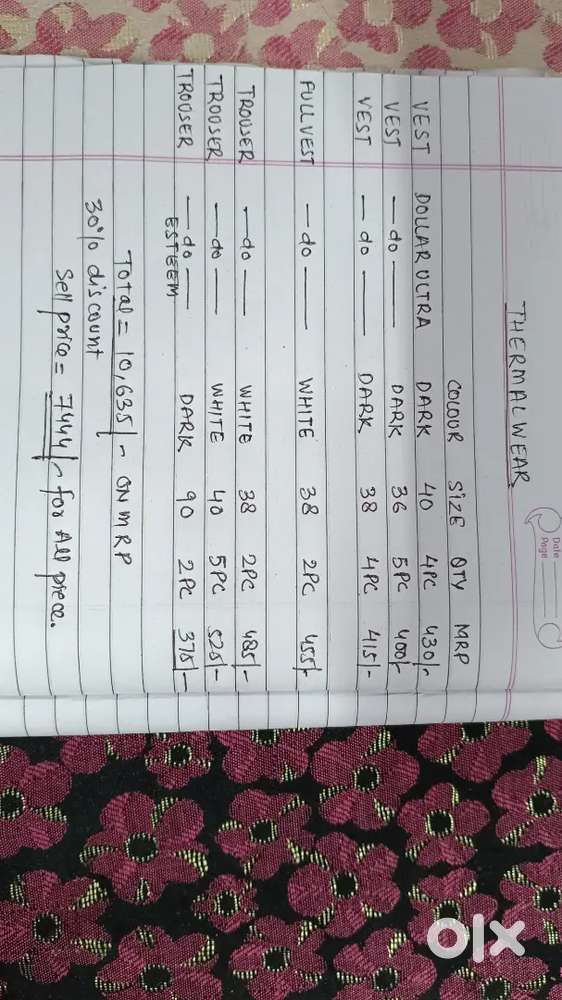 Date
Page
THERMAL WEAR
COLOUR SIZE QTY MRP
VEST DOLLAR ULTRA DARK 40 4PC 430/-
VEST — do — DARK 36 5PC 400/-
VEST — do — DARK 38 4PC 415/-
FULL VEST — do — WHITE 38 2PC 455/-
TROUSER — do — WHITE 38 2PC 485/-
TROUSER — do — WHITE 40 5PC 525/-
TROUSER — do — DARK 90 2PC 375/-
ESTEEM
Total = 10,635/- ON MRP
30% discount
Sell price = 7444/- for All piece.
olx